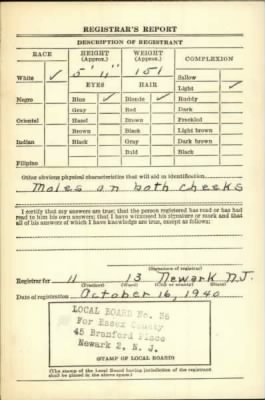 REGISTRAR'S REPORT
DESCRIPTION OF REGISTRANT
RACE HEIGHT (Approx.) WEIGHT (Approx.) COMPLEXION
White ✓ 5' 11" 151 Sallow
EYES HAIR Light ✓
Negro Blue ✓ Blonde ✓ Ruddy
Gray Red Dark
Oriental Hazel Brown Freckled
Brown Black Light brown
Indian Black Gray Dark brown
Bald Black
Filipino
Other obvious physical characteristics that will aid in identification
Moles on both cheeks
I certify that my answers are true; that the person registered has read or has had
read to him his own answers; that I have witnessed his signature or mark and that
all of his answers of which I have knowledge are true, except as follows:
(Signature of registrar)
Registrar for 11 13 Newark N.J.
(Precinct) (Ward) (City or county) (State)
Date of registration October 16, 1940
LOCAL BOARD No. 36
For Essex County
45 Branford Place
Newark 2, N. J.
STAMP OF LOCAL BOARD
(The stamp of the Local Board having jurisdiction of the registrant
shall be placed in the above space.)